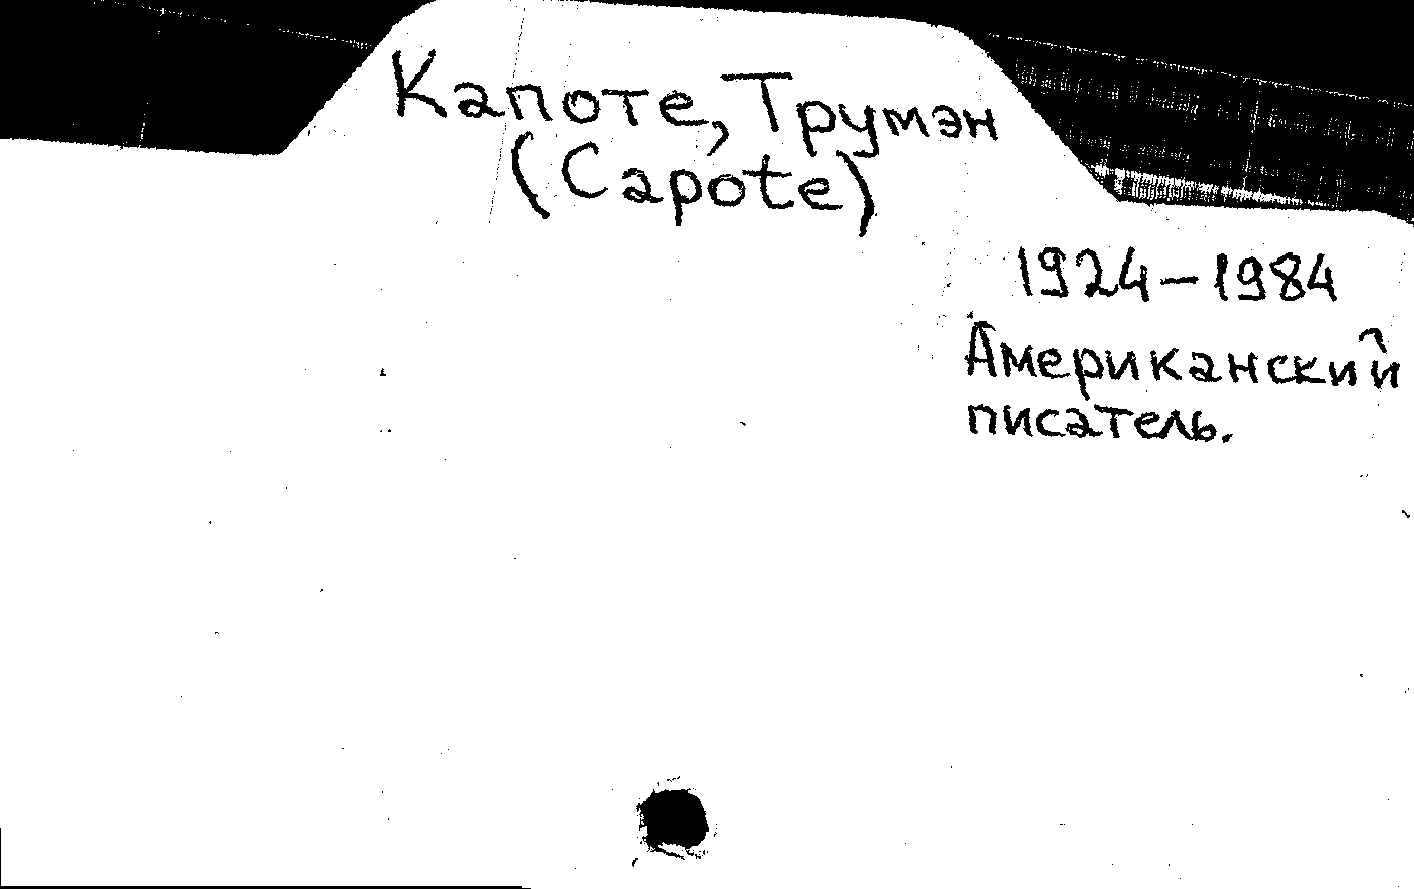 Капоте, Трумэн
(Capote)
1924-1984
Американский
писатель.